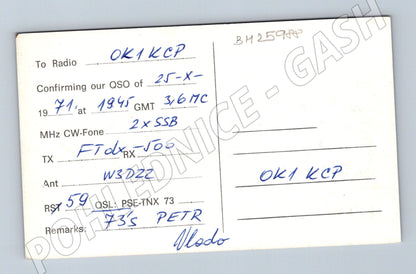 BH25988
To Radio OK1KCP
Confirming our QSO of 25-X-
1971, at 1945 GMT 3,6 MC
MHz CW-Fone 2xSSB
TX FTdx-500 RX
Ant W3DZZ
RST 59 QSL: PSE-TNX 73
Remarks: 73's PETR
Vlado
OK1 KCP
POHLEDNICE - GASH